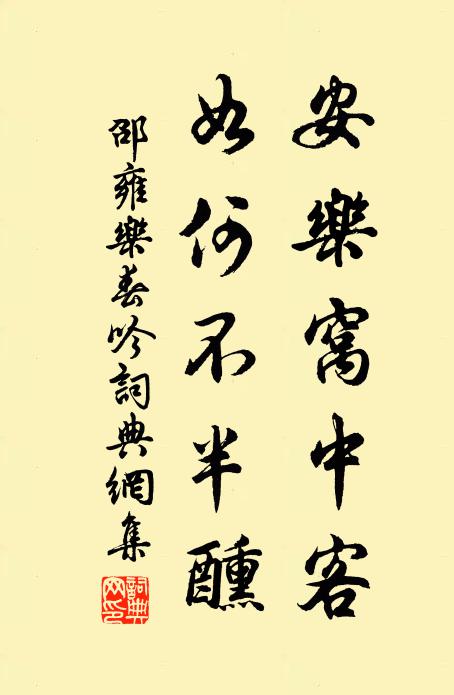 安樂窩中客
如何不半醺
邵雍樂春吟詞典網集
詞典網印